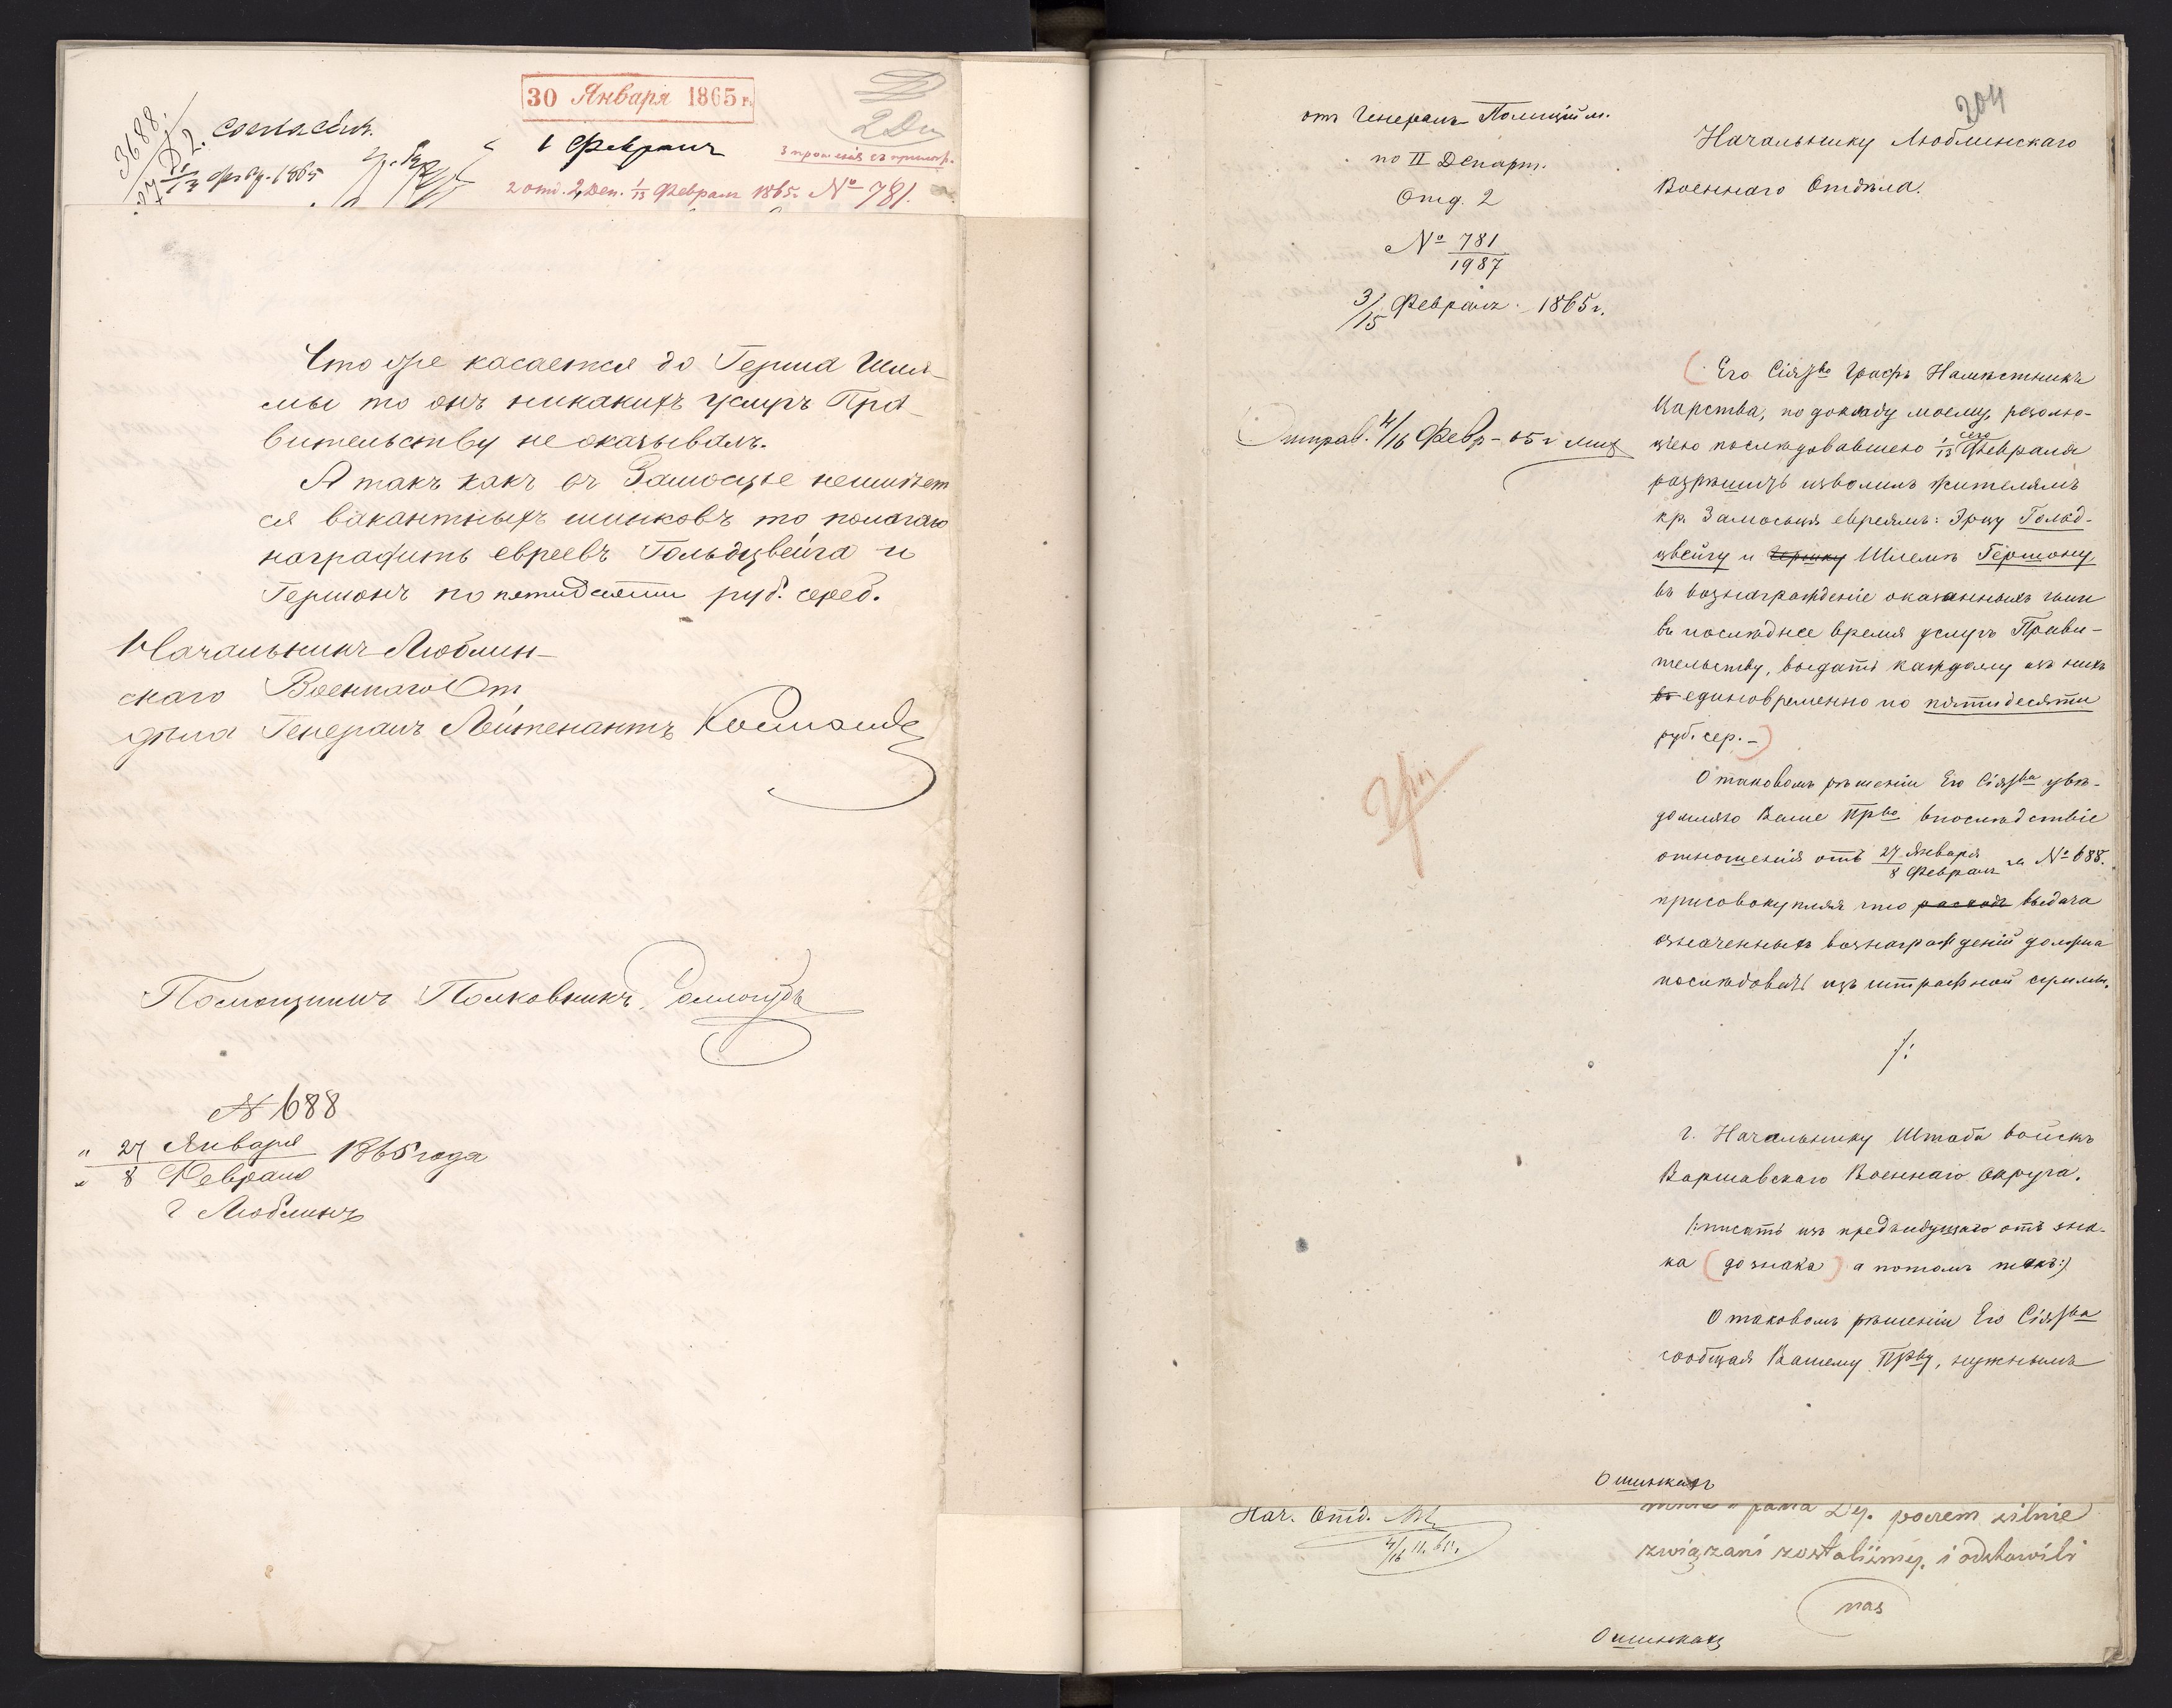 30 Января 1865 г.
3688.
согласенъ.
1/13 февр. 1865
1 Февраля
3 прошенія съ
2 отд. 2 Деп. 1/13 Февраля 1865 г. № 781.
Что же касается до Герша Шля-
мы то онъ никакихъ услугъ Пра-
вительству не оказывалъ.
А такъ какъ въ Замосцье неимѣет
ся вакантныхъ шинковъ то полагаю
наградить евреевъ Гольдцвейга и
Гершонъ по пятидесяти руб. сереб.
Начальникъ Люблин-
скаго Военнаго От
дѣла Генералъ Лейтенантъ
Помощникъ Полковникъ
№ 688
" 27 Января
" 8 Февраля
1865 года
г Люблинъ
204
отъ Генералъ-Полиційм.
по II Департ.
Отд. 2
№ 781
1987
3/15 Февраля 1865 г.
Отправ. 4/16 Февр-65 г
Начальнику Люблинскаго
Военнаго Отдѣла.
( Его Сіят во Графъ Намѣстникъ
Царства, по докладу моему, резолю-
ціею послѣдовавшею 1/13 сего Февраля
разрѣшить изволилъ жителямъ
кр. Замосьця евреямъ: Эрцу Гольд-
цвейгу и Гершку Шлемѣ Гершону,
въ вознагражденіе оказанныхъ ими
въ послѣднее время услугъ Прави-
тельству, выдать каждому изъ нихъ
въ единовременно по пятидесяти
руб. сер. - )
О таковомъ рѣшеніи Его Сіят ва увѣ-
домляю Ваше Пр во впослѣдствіе
отношенія отъ 27 Января / 8 Февраля за № 688.
присовокупляя что расходъ выдача
означенныхъ вознагражденій должна
послѣдовать изъ штрафной суммы.
/:
г. Начальнику Штаба войскъ
Варшавскаго Военнаго Округа.
/: писать изъ предъидущаго отъ зна-
ка ( до знака ) а потомъ такъ:/
О таковомъ рѣшеніи Его Сіят ва
сообщая Вашему Пр ву, нужнымъ
Нач. Отд.
4/16 II. 65 г.
pana Dy. poczem silnie
związani zostaliśmy. i odstawili
nas